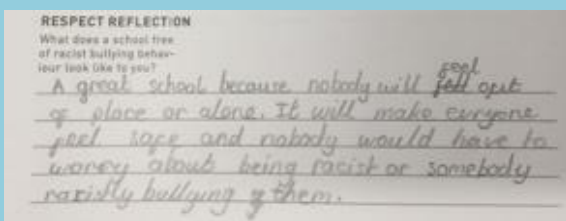 RESPECT REFLECTION
What does a school free
of racist bullying behav-
iour look like to you?
feel
A great school because nobody will out
of place or alone. It will make everyone
feel safe and nobody would have to
worrey about being racist or somebody
racistly bullying them.